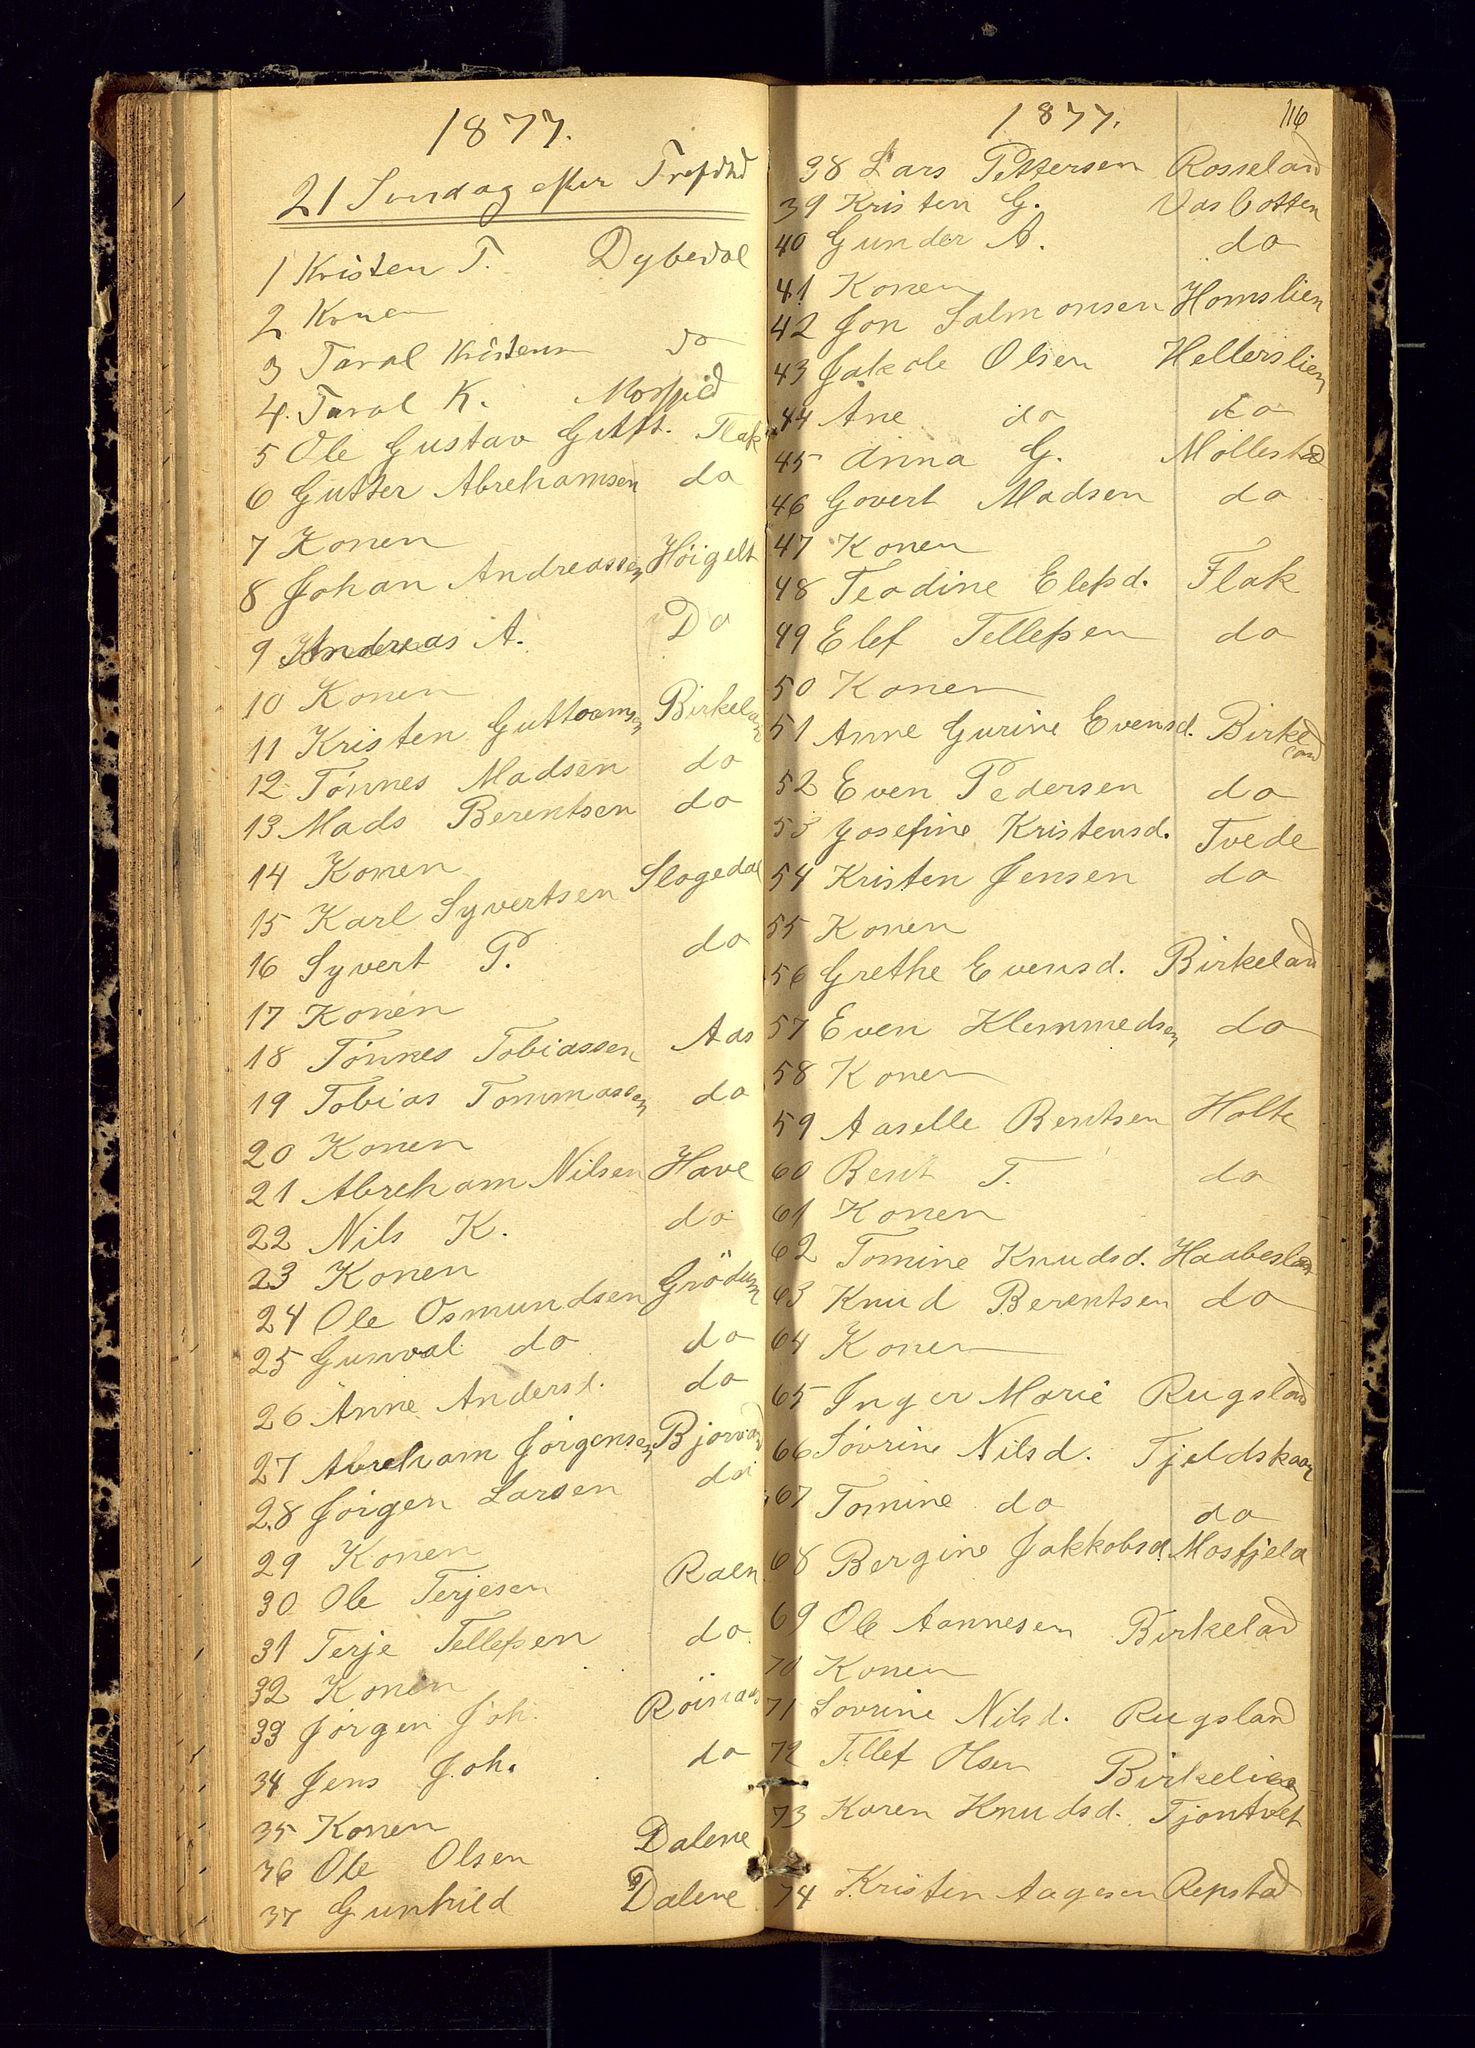 1877.
21 Søndag efter Trefdhd
1 Kristen T. Dybedal
2 Konen
3 Taral Kristensen do
4. Taral K. Mosfjeld
5 Ole Gustav Gutt. Flak
6 Gutter Abrehamsen do
7 Konen
8 Johan Andreassen Høigelt
9 Andreas A. Do
10 Konen
11 Kristen Guttoamsen Birkelan
12 Tønnes Madsen do
13 Mads Berentsen do
14 Konen
15 Karl Syvertsen Slogedal
16 Syvert P. do
17 Konen
18 Tønnes Tobiassen Aas
19 Tobias Tommassen do
20 Konen
21 Abreham Nilsen Have
22 Nils K. do
23 Konen
24 Ole Osmundsen Grödum
25 Gunval do do
26 Anne Andersd. do
27 Abreham Jørgensen Bjorvand
28 Jørgen Larsen do
29 Konen
30 Ole Terjesen Raen
31 Terje Tellefsen do
32 Konen
33 Jørgen Joh. Röisnaas
34 Jens Joh. do
35 Konen
36 Ole Olsen Dalene
37 Gunhild Dalene
116
1877.
38 Lars Pettersen Rosseland
39 Kristen G. Vasbotten
40 Gunder A. do
41 Konen
42 Jon Salmonsen Homslien
43 Jakole Olsen Hellerslien
44 Ane do do
45 Anna G. Mollestad
46 Govert Madsen do
47 Konen
48 Teodine Elefsd. Flak
49 Elef Tellefsen do
50 Konen
51 Anne Gurine Evensd. Birkeland
52 Even Pedersen do
53 Josefine Kristensd. Tvede
54 Kristen Jensen do
55 Konen
56 Grethe Evensd. Birkeland
57 Even Klemmedsen do
58 Konen
59 Aaselle Bentsen Holte
60 Bent T. do
61 Konen
62 Tomine Knudsd. Haabeslan
63 Knud Berentsen do
64 Konen
65 Inger Marie Rugsland
66 Søvrine Nilsd. Tjeldskaar
67 Tomine do do
68 Bergine Jakkobsd. Mosfjeld
69 Ole Aannesen Birkeland
70 Konen
71 Sovrine Nilsd. Rugsland
72 Tellef Olsen Birkelien
73 Karen Knudsd. Tjontvet
74 Kristen Aagesen Repstad